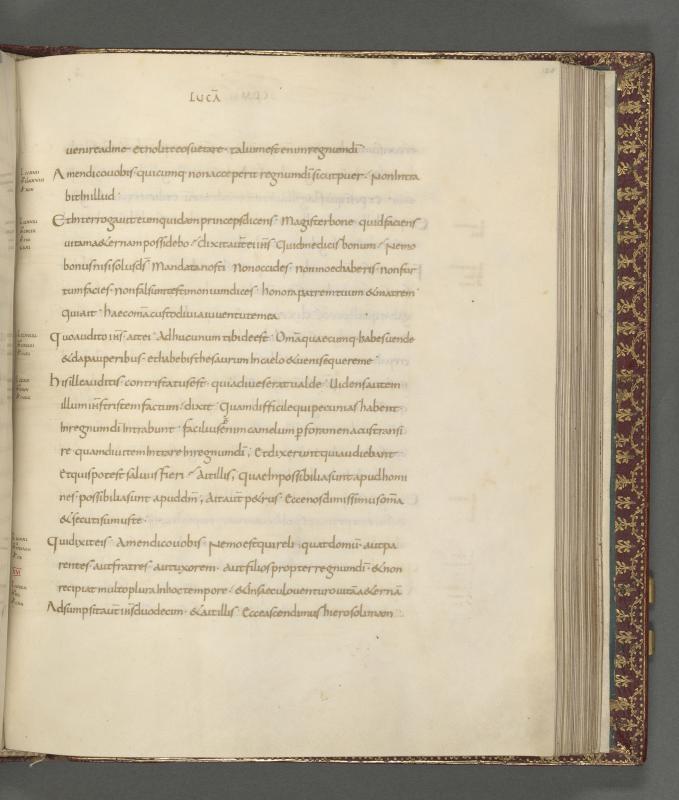 LUCĀ
uenire adme · et nolite eos uetare · talium est enim regnum dī
Amen dico uobis · quicumq; non acceperit regnum dī sicut puer · Non intra
bit in illud ·
Et interrogauit eum quidam princeps dicens · Magister bone quid faciens
uitam aeternam possidebo · dixit aut̄ ei ih̄s Quid me dicis bonum · Nemo
bonus nisi solus ds̄ Mandata nosti Non occides · non moechaberis non fur
tum facies · non falsum testimonium dices · honora patrem tuum & matrem ·
qui ait · haec om̄a custodiui a iuuentute mea
Quo audito ih̄s · ait ei Adhuc unum tibi deest · Om̄a quaecumq; habes uende
& da pauperibus · et habebis thesaurum in caelo & ueni sequere me
His ille auditis · contristatus est · quia diues erat ualde · Uidens autem
illum ih̄s tristem factum · dixit Quam difficile qui pecunias habent ·
in regnum dī intrabunt · facilius est enim camelum p foramen acus transi
re quam diuitem intrare in regnum dī, Et dixerunt qui audiebant
et quis potest saluus fieri · Ait illis, Quae inpossibilia sunt apud homi
nes · possibilia sunt apud dm̄, Ait aut̄ petrus Ecce nos dimisimus om̄a
& secuti sumus te ·
Qui dixit eis Amen dico uobis Nemo est qui reli quat domū · aut pa
rentes aut fratres aut uxorem · aut filios propter regnum dī & non
recipiat multo plura in hoc tempore · & in saeculo uenturo uitā aeternā
Adsumpsit aut̄ ih̄s duodecim · & ait illis Ecce ascendimus hierosolimam